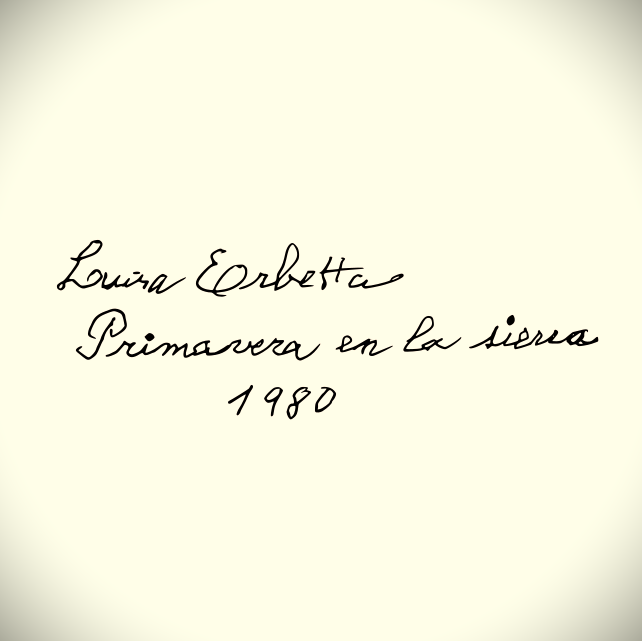 Louisa Eorbetta
Primavera en la sierra
1980